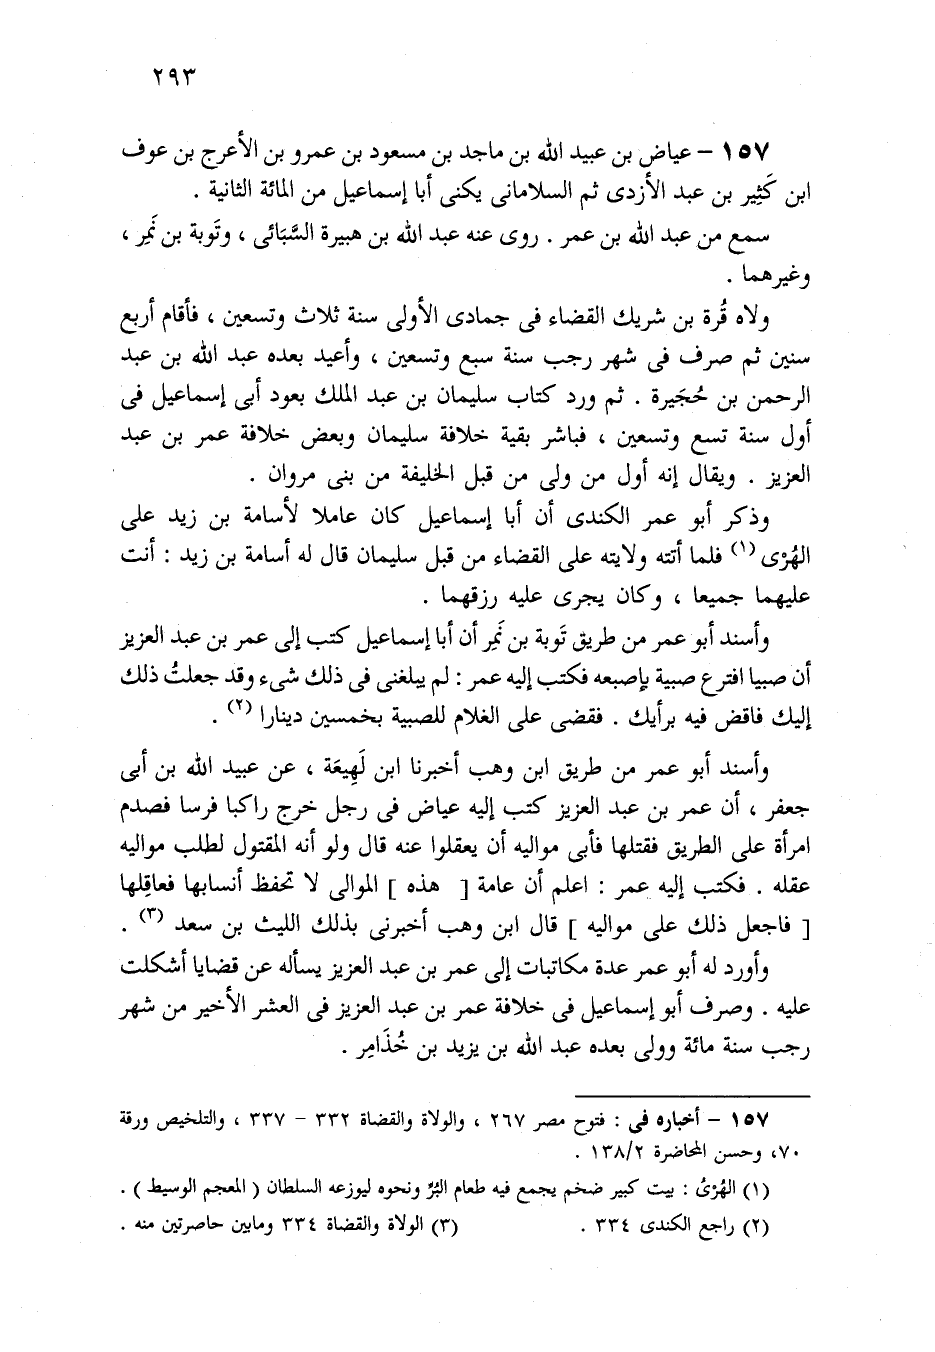 ٢٩٣
١٥٧ – عياض بن عبيد الله بن ماجد بن مسعود بن عمرو بن الأعرج بن عوف
ابن كَثِير بن عبد الأزدى ثم السلامانى يكنى أبا إسماعيل من المائة الثانية .
سمع من عبد الله بن عمر . روى عنه عبد الله بن هبيرة السَّبَائى ، وتَوبة بن نَمِر ،
وغيرهما .
ولاه قُرة بن شريك القضاء فى جمادى الأولى سنة ثلاث وتسعين ، فأقام أربع
سنين ثم صرف فى شهر رجب سنة سبع وتسعين ، وأعيد بعده عبد الله بن عبد
الرحمن بن حُجَيرة . ثم ورد كتاب سليمان بن عبد الملك بعود أبى إسماعيل فى
أول سنة تسع وتسعين ، فباشر بقية خلافة سليمان وبعض خلافة عمر بن عبد
العزيز . ويقال إنه أول من ولى من قبل الخليفة من بنى مروان .
وذكر أبو عمر الكندى أن أبا إسماعيل كان عاملا لأسامة بن زيد على
الهُرْى (١) فلما أتته ولايته على القضاء من قبل سليمان قال له أسامة بن زيد : أنت
عليهما جميعا ، وكان يجرى عليه رزقهما .
وأسند أبو عمر من طريق تَوبة بن نَمِر أن أبا إسماعيل كتب إلى عمر بن عبد العزيز
أن صبيا افترع صبية بإصبعه فكتب إليه عمر : لم يبلغنى فى ذلك شىء وقد جعلتُ ذلك
إليك فاقض فيه برأيك . فقضى على الغلام للصبية بخمسين دينارا (٢) .
وأسند أبو عمر من طريق ابن وهب أخبرنا ابن لَهِيعَة ، عن عبيد الله بن أبى
جعفر ، أن عمر بن عبد العزيز كتب إليه عياض فى رجل خرج راكبا فرسا فصدم
امرأة على الطريق فقتلها فأبى مواليه أن يعقلوا عنه قال ولو أنه المقتول لطلب مواليه
عقله . فكتب إليه عمر : اعلم أن عامة [ هذه ] الموالى لا تحفظ أنسابها فعاقِلها
[ فاجعل ذلك على مواليه ] قال ابن وهب أخبرنى بذلك الليث بن سعد (٣) .
وأورد له أبو عمر عدة مكاتبات إلى عمر بن عبد العزيز يسأله عن قضايا أشكلت
عليه . وصرف أبو إسماعيل فى خلافة عمر بن عبد العزيز فى العشر الأخير من شهر
رجب سنة مائة وولى بعده عبد الله بن يزيد بن خُذَامِر .
١٥٧ – أخباره فى : فتوح مصر ٢٦٧ ، والولاة والقضاة ٣٣٢ – ٣٣٧ ، والتلخيص ورقة
٧٠، وحسن المحاضرة ١٣٨/٢ .
(١) الهُرْىُ : بيت كبير ضخم يجمع فيه طعام البُرِّ ونحوه ليوزعه السلطان ( المعجم الوسيط ) .
(٢) راجع الكندى ٣٣٤ . (٣) الولاة والقضاة ٣٣٤ ومابين حاصرتين منه .